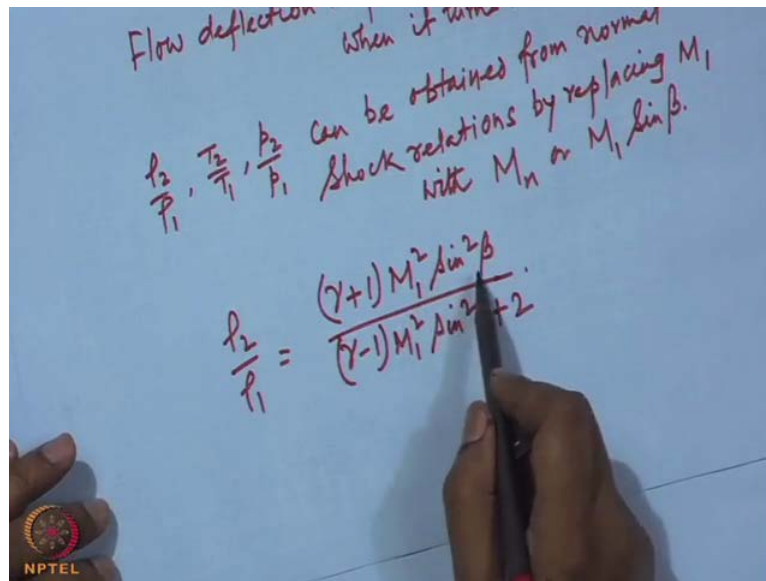 Flow deflection
when it turns
ρ₂/ρ₁, T₂/T₁, p₂/p₁ can be obtained from normal
shock relations by replacing M₁
with Mₙ or M₁ sinβ.
ρ₂/ρ₁ = (γ+1) M₁² sin²β / (γ-1) M₁² sin² +2
NPTEL